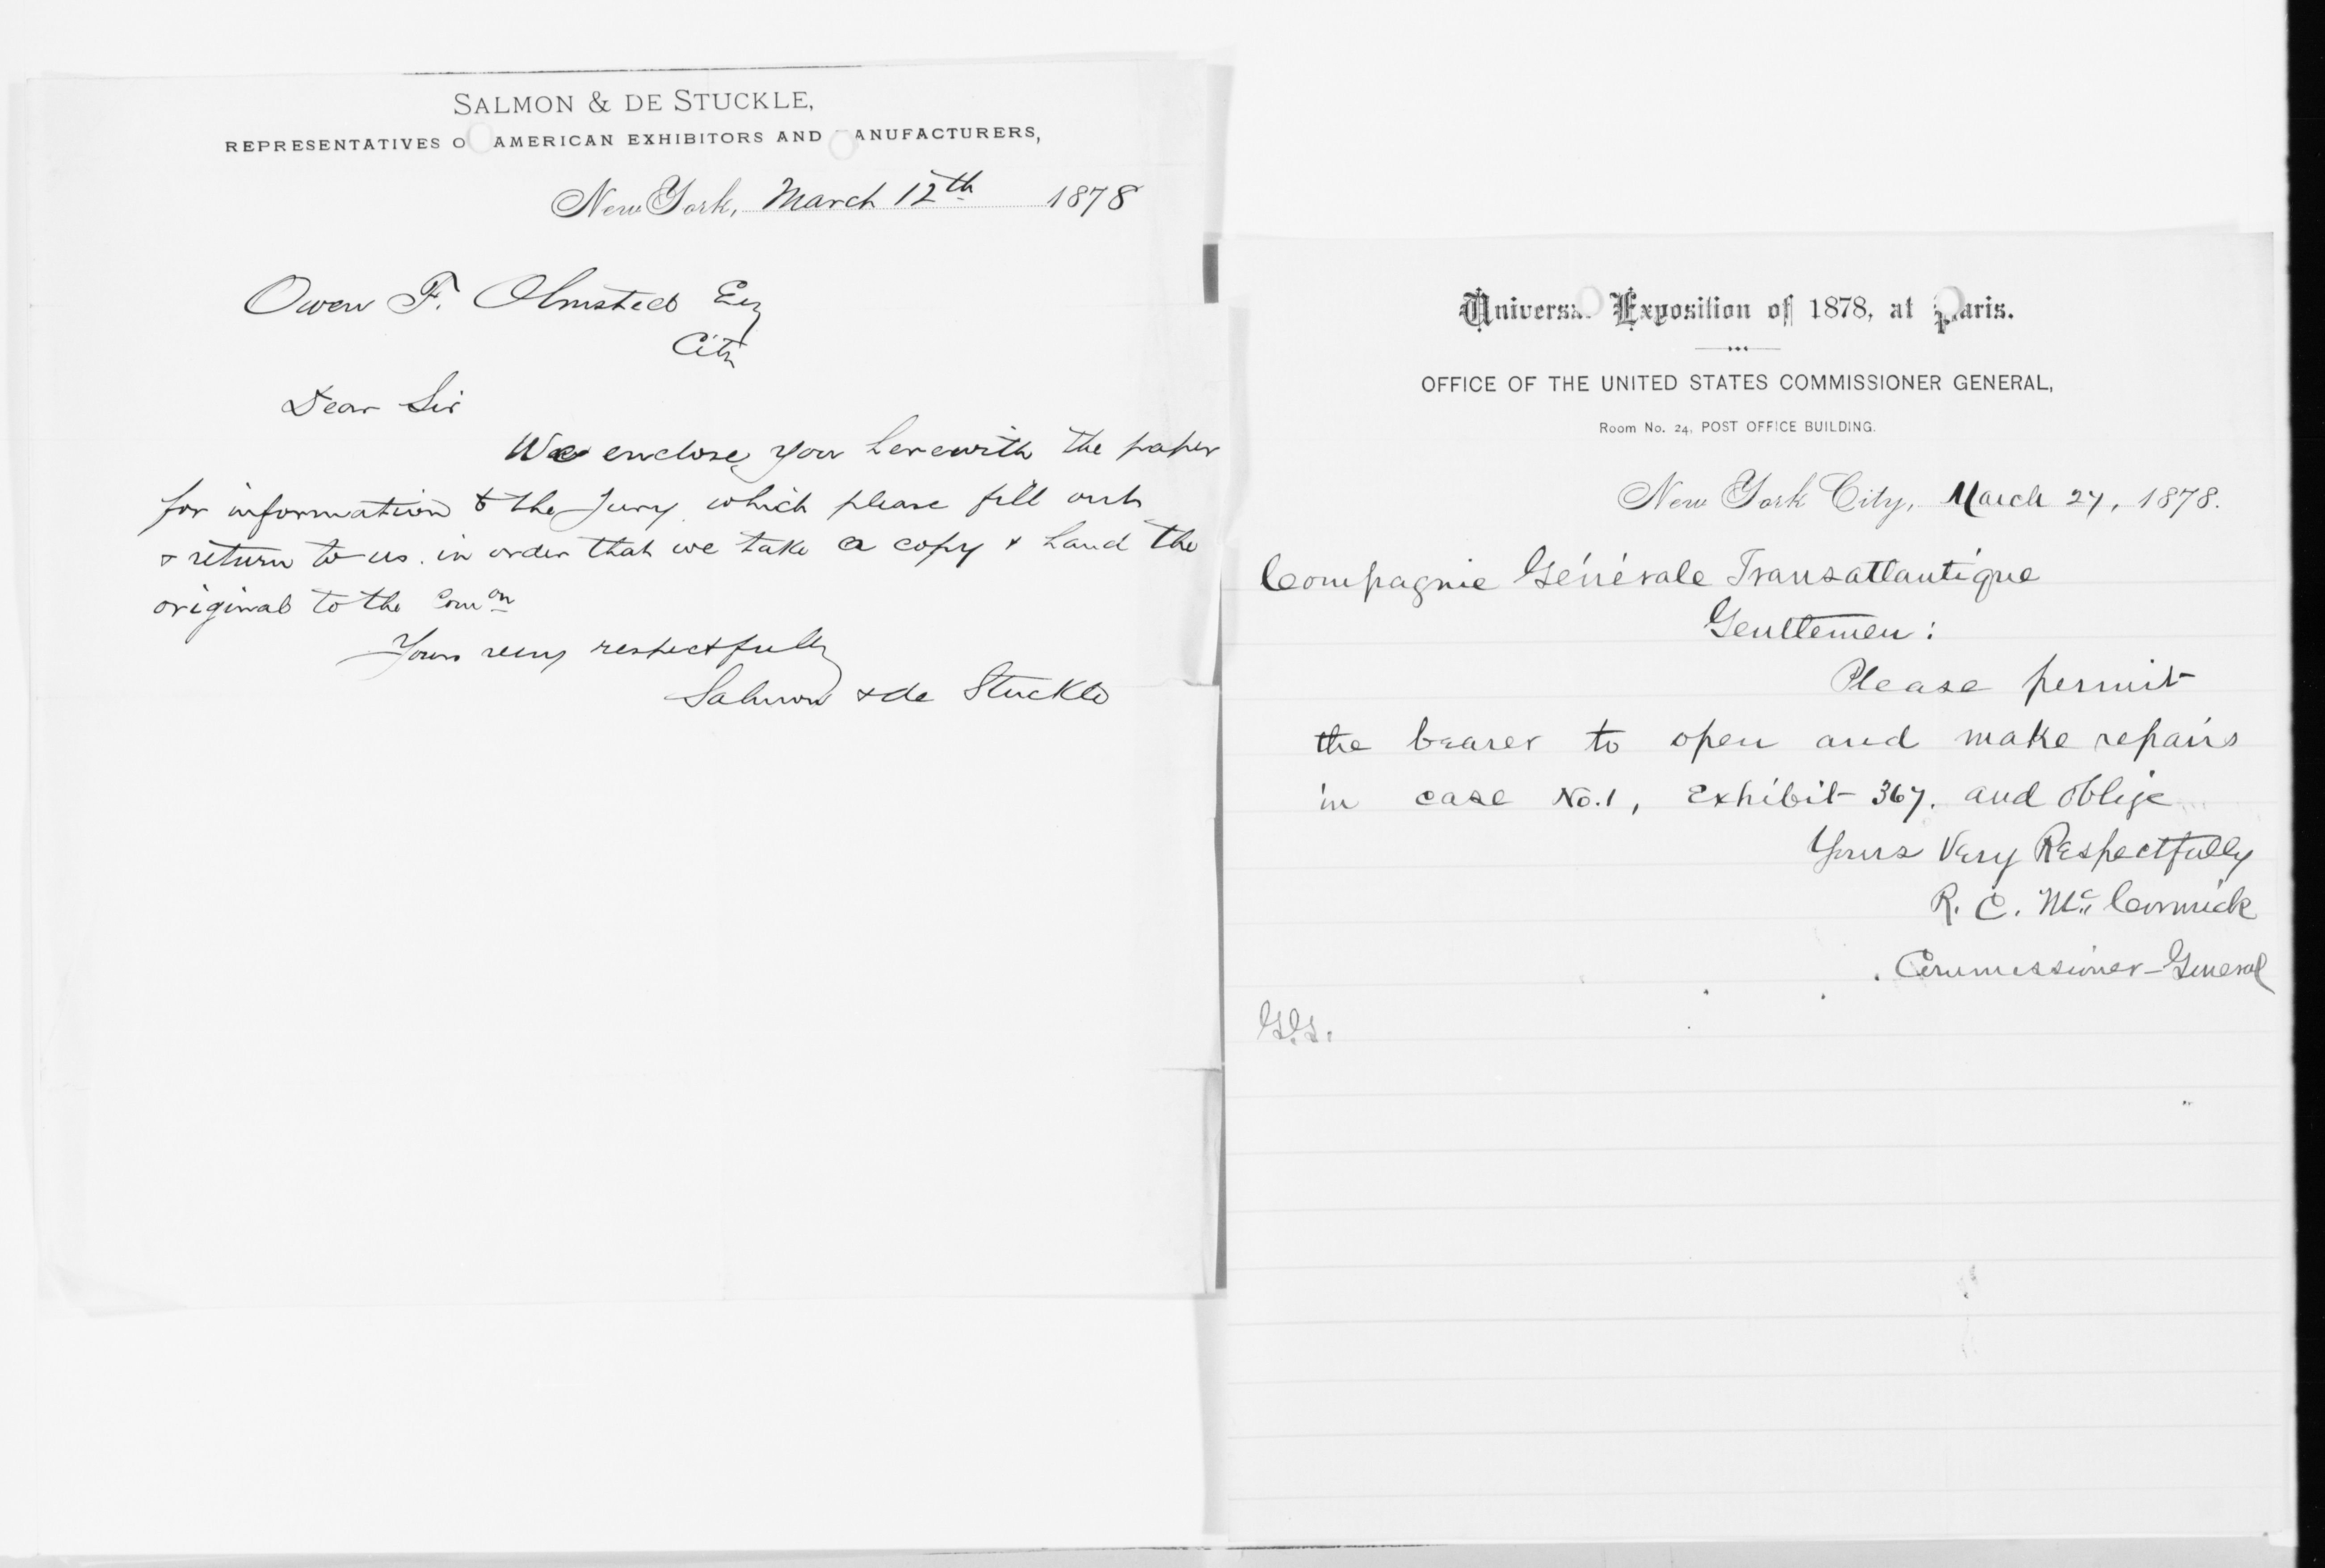 SALMON & DE STUCKLE,
REPRESENTATIVES O AMERICAN EXHIBITORS AND ANUFACTURERS,
New York, March 12th 1878
Owen F. Olmsted Esq
City
Dear Sir
We enclose you herewith the paper
for information to the Jury which please fill out
& return to us. in order that we take a copy & hand the
original to the Comon
Yours very respectfully
Salmon & de Stuckle
Universal Exposition of 1878, at Paris.
OFFICE OF THE UNITED STATES COMMISSIONER GENERAL,
Room No. 24, POST OFFICE BUILDING.
New York City, March 27, 1878.
Compagnie Générale Transatlantique
Gentlemen:
Please permit
the bearer to open and make repairs
in case No. 1, Exhibit 367. and oblige
Yours Very Respectfully
R. C. McCormick
Commissioner-General
G.G.